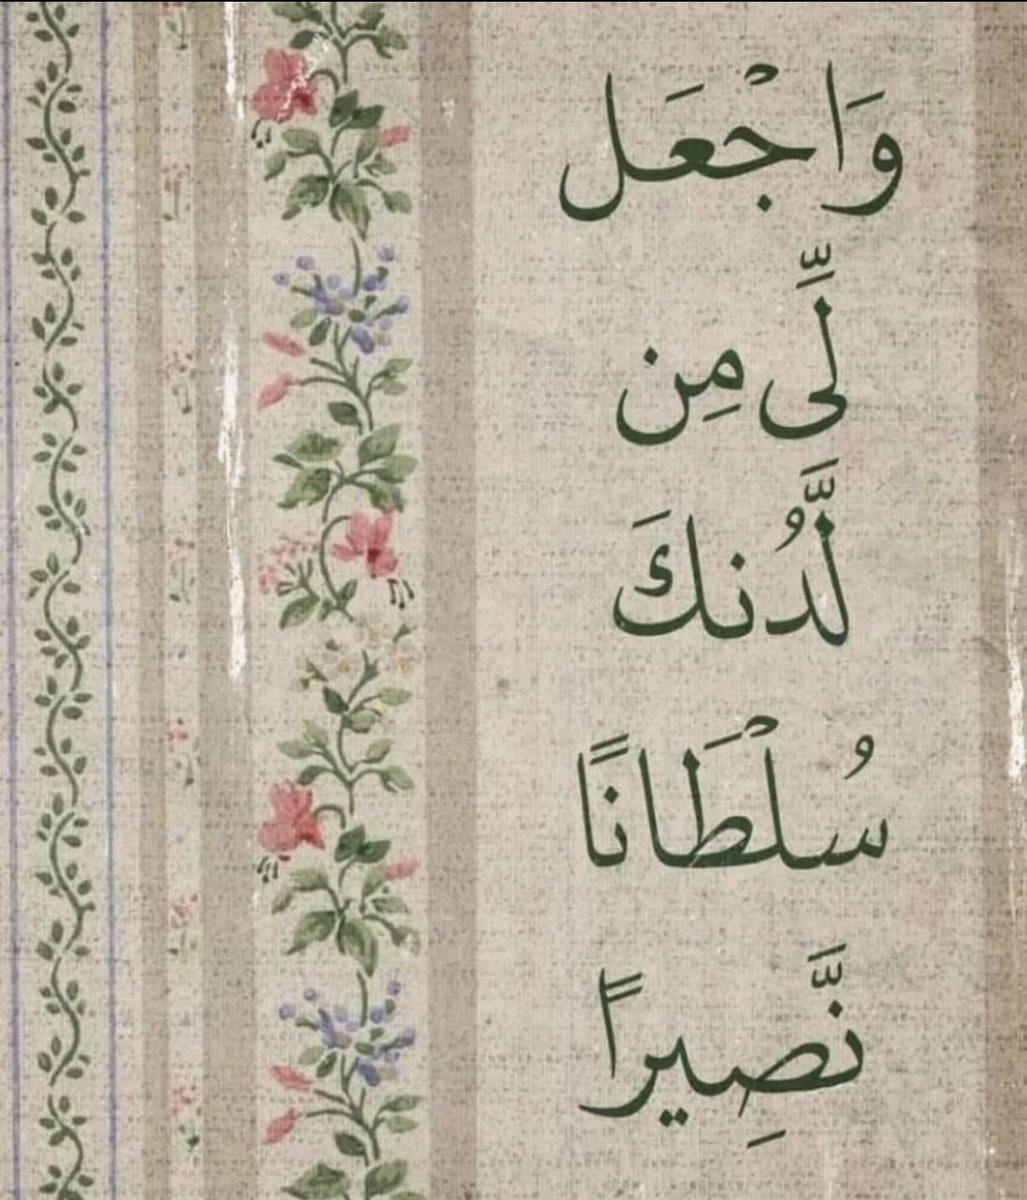 وَاجْعَل
لِّى مِن
لَّدُنكَ
سُلْطَانًا
نَّصِيرًا